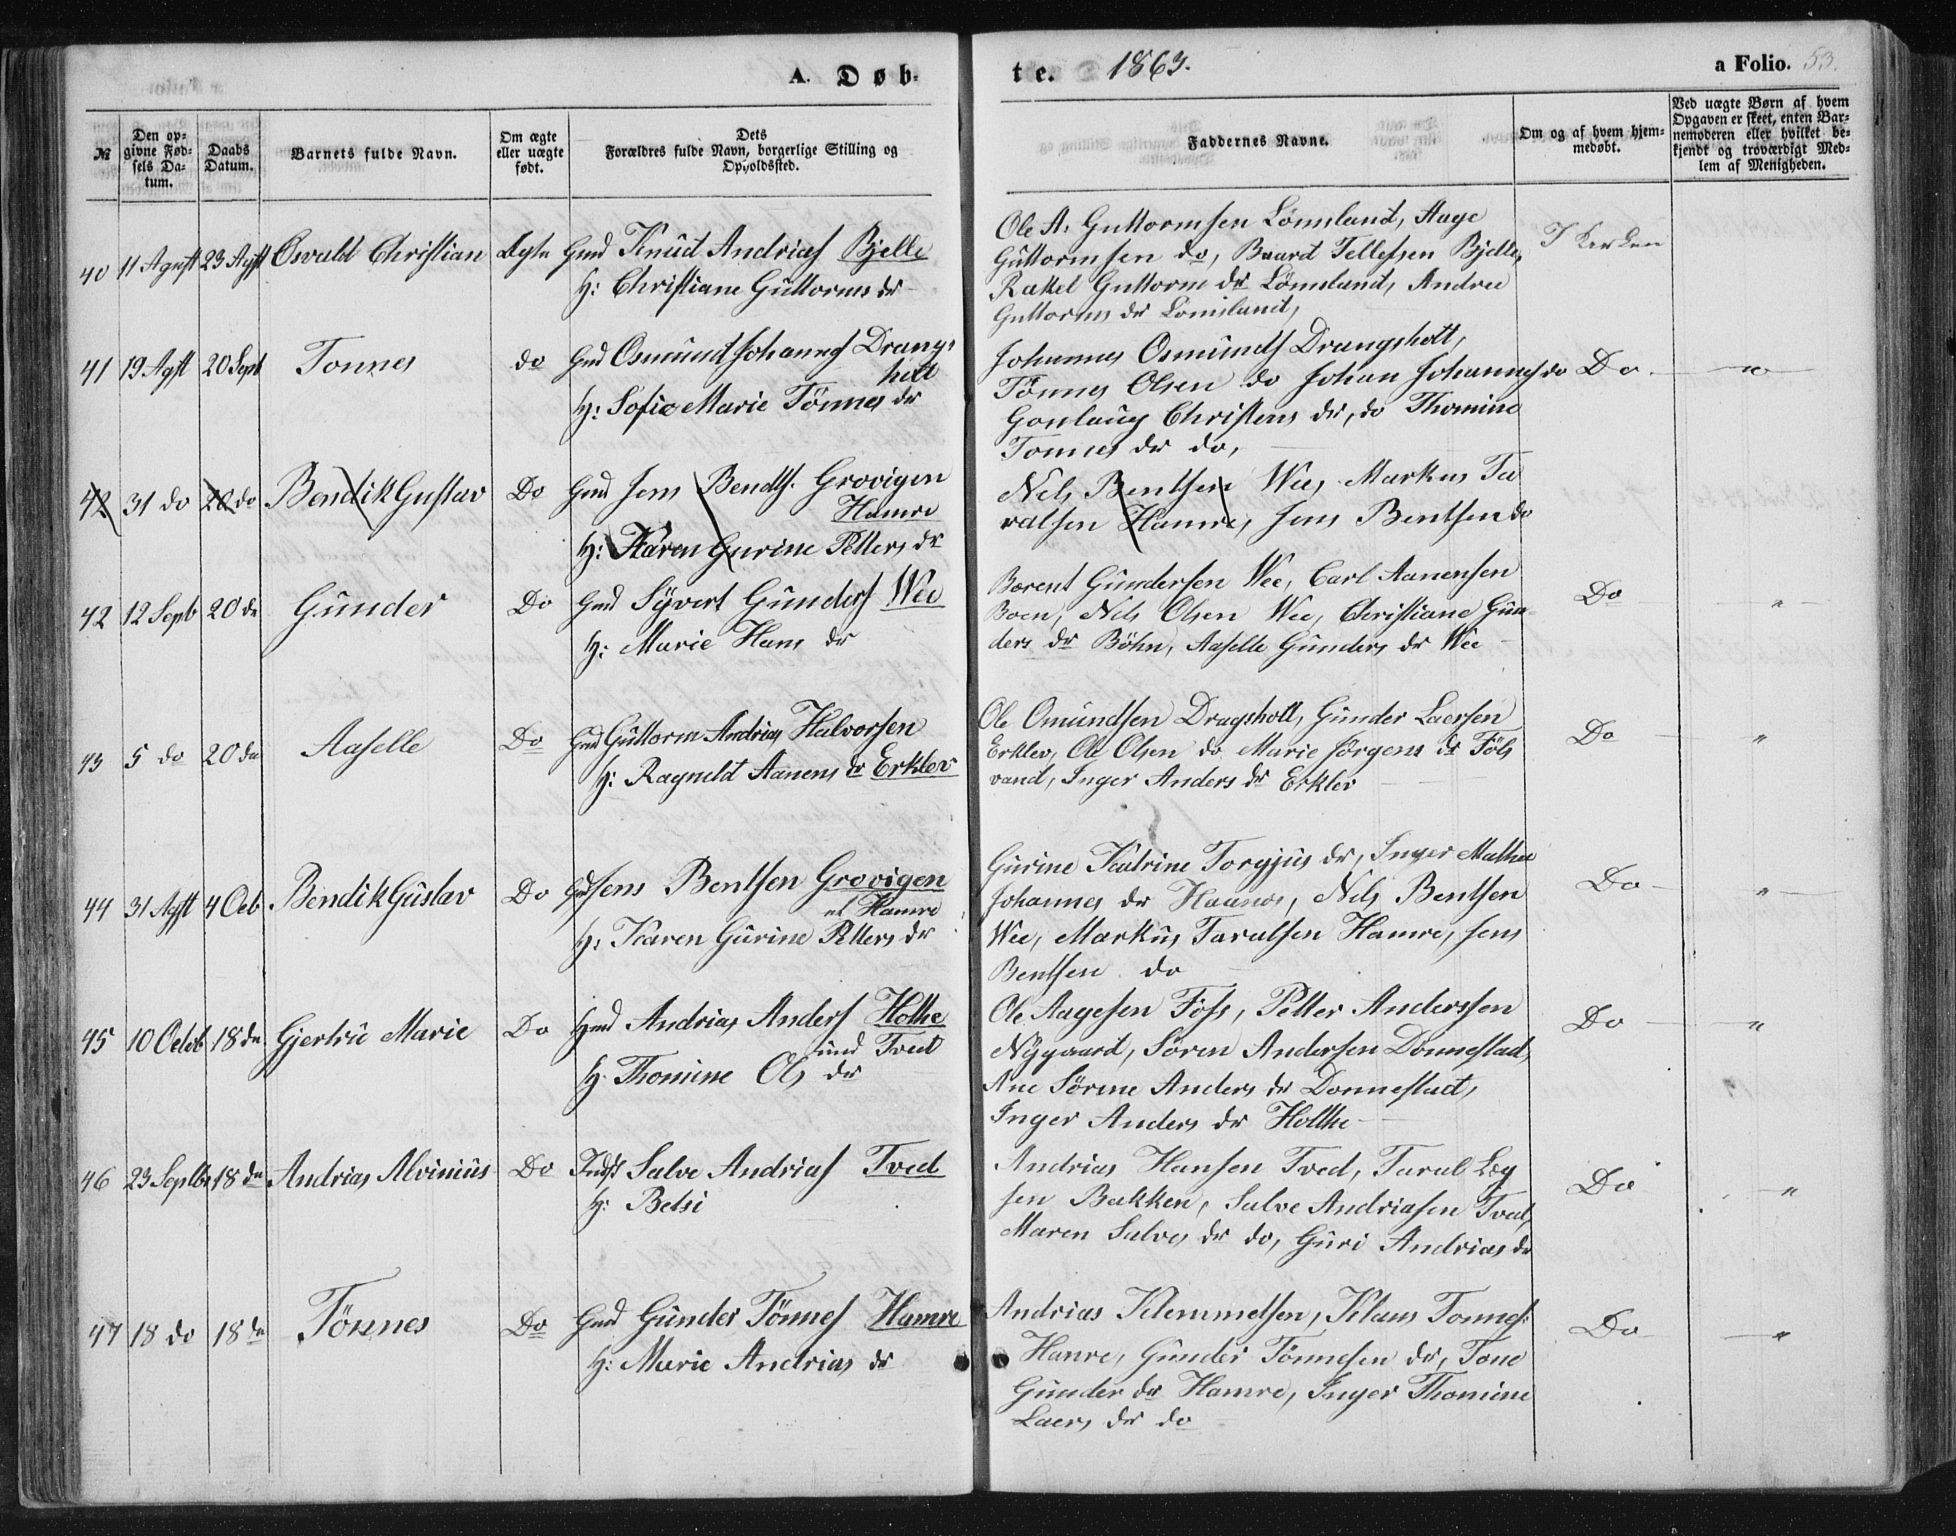 A. Døb-
te. 1863.
a Folio. 53.
№
Den op-
givne Fød-
sels Da-
tum.
Daabs
Datum.
Barnets fulde Navn.
Om ægte
eller uægte
født.
Dets
Forældres fulde Navn, borgerlige Stilling og
Opholdssted.
Faddernes Navne.
Om og af hvem hjem-
medøbt.
Ved uægte Børn af hvem
Opgaven er skeet, enten Bar-
nemoderen eller hvilket be-
kjendt og troværdigt Med-
lem af Menigheden.
40 11 Agust 23 Agst Oswald Christian Ægte Gmd Knud Andrias Bjelle
H: Christiane Guttorms dr
Ole A. Guttormsen Lømsland, Aage
Guttormsen do, Baard Tellefsen Bjelle,
Rakel Guttorm dr Lømsland, Andrea
Guttorms dr Lomsland,
I Kerken
41 19 Agst 20 Sept Tonnes do Gmd Osmund Johannes Drangs
holt
H: Sofie Marie Tönnes dr
Johannes Osmunds Drangsholt,
Tönnes Olsen do Johan Johannes do
Gonlaug Christens dr, do Thomine
Tonnes dr do,
Do - "
42 31 do 20 do Bendik Gustav Do Gmd Jens Bendts. Grovigen
Hamre
H: Karen Gurine Petters dr
Nels Bentsen Wee, Markus Ta
ralsen Hamre, Jens Bentsen do
42 12 Septb 20 do Gunder Do Gmd Syvert Gunders Wee
H: Marie Hans dr
Berent Gundersen Wee, Carl Aanensen
Boen, Nils Olsen Wee, Christiane Gun-
ders dr Böhn, Aaselle Gunders dr Wee
Do "
43 5 do 20 do Aaselle Do Gmd Guttorm Andrias Halvorsen
H: Ragneld Aanens dr Erklev
Ole Omundsen Dragsholt, Gunder Laersen
Erklev, Ole Olsen do Marie Jörgens dr Föls
vand, Inger Anders dr Erklev
Do "
44 31 Agst 4 Octb Bendik Gustav Do Gmd Jens Bentsen Grovigen
el Hamre
H: Karen Gurine Petters dr
Gurine Katrine Torgjus dr, Inger Mathea
Johannes dr Haanes, Nils Bentsen
Wee, Markus Taralsen Hamre, Jens
Bentsen do
Do "
45 10 Octob 18 do Gjertru Marie Do Hmd Andrias Anders Holte
und Tveit
H. Thomine Ols dr
Ole Aagesen Föss, Petter Anderssen
Nygaard, Sören Andersen Donnestad,
Ane Sörine Anders dr Donnestad,
Inger Anders dr Hollte
Do "
46 23 Septbr 18 do Andrias Alvinius Do Indst Salve Andrias Tved
H: Betsi
Andrias Hansen Tved, Taral Leg
sen Bakken, Salve Andriasen Tved,
Maren Salves dr do, Guri Andrias dr
Do "
47 18 do 18 do Tönnes Do Gmd Gunder Tönnes Hamre
H: Marie Andrias dr
Andrias Klemmetsen, Klaus Tonnes:
Hamre, Gunder Tönnesen do, Tone
Gunder dr Hamre, Inger Thomine
Laers dr do
Do "